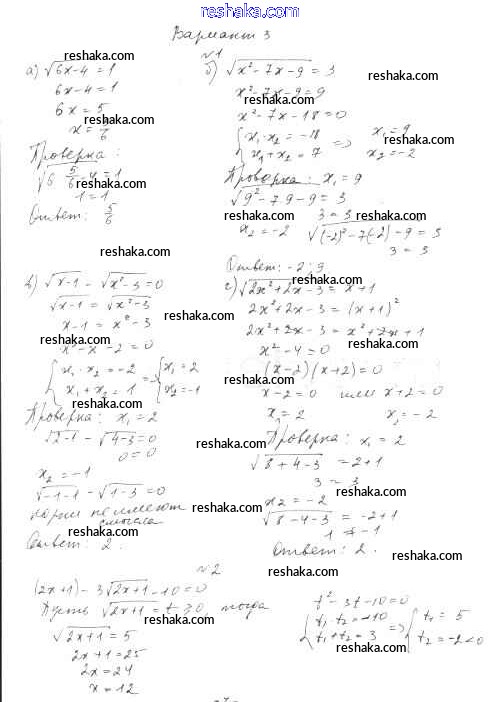 www.reshaka.com
Вариант 3
№1
а) √6x-4 = 1
6x-4=1
6x=5
x=5/6
Проверка:
√6 5/6 -4 = 1
1=1
Ответ: 5/6
б) √x²-7x-9 = 3
x²-7x-9=9
x²-7x-18=0
{ x₁·x₂=-18
x₁+x₂=7 => x₁=9
x₂=-2
Проверка: x₁=9
√9²-7·9-9 = 3
3=3
x₂=-2
√(-2)²-7(-2)-9 = 3
3=3
Ответ: -2; 9
в) √x-1 - √x²-3 = 0
√x-1 = √x²-3
x-1=x²-3
x²-x-2=0
{ x₁·x₂=-2
x₁+x₂=1 => { x₁=2
x₂=-1
Проверка: x₁=2
√2-1 - √4-3=0
0=0
x₂=-1
√-1-1 - √1-3=0
корни не имеют
смысла
Ответ: 2.
г) √2x²+2x-3 = x+1
2x²+2x-3=(x+1)²
2x²+2x-3=x²+2x+1
x²-4=0
(x-2)(x+2)=0
x-2=0 или x+2=0
x₁=2 x₂=-2
Проверка: x₁=2
√8+4-3 = 2+1
3=3
x₂=-2
√8-4-3 = -2+1
1≠-1
Ответ: 2.
№2
(2x+1)-3√2x+1-10=0
Пусть √2x+1=t≥0, тогда
t²-3t-10=0
{ t₁·t₂=-10
t₁+t₂=3 => { t₁=5
t₂=-2<0
√2x+1=5
2x+1=25
2x=24
x=12
reshaka.com